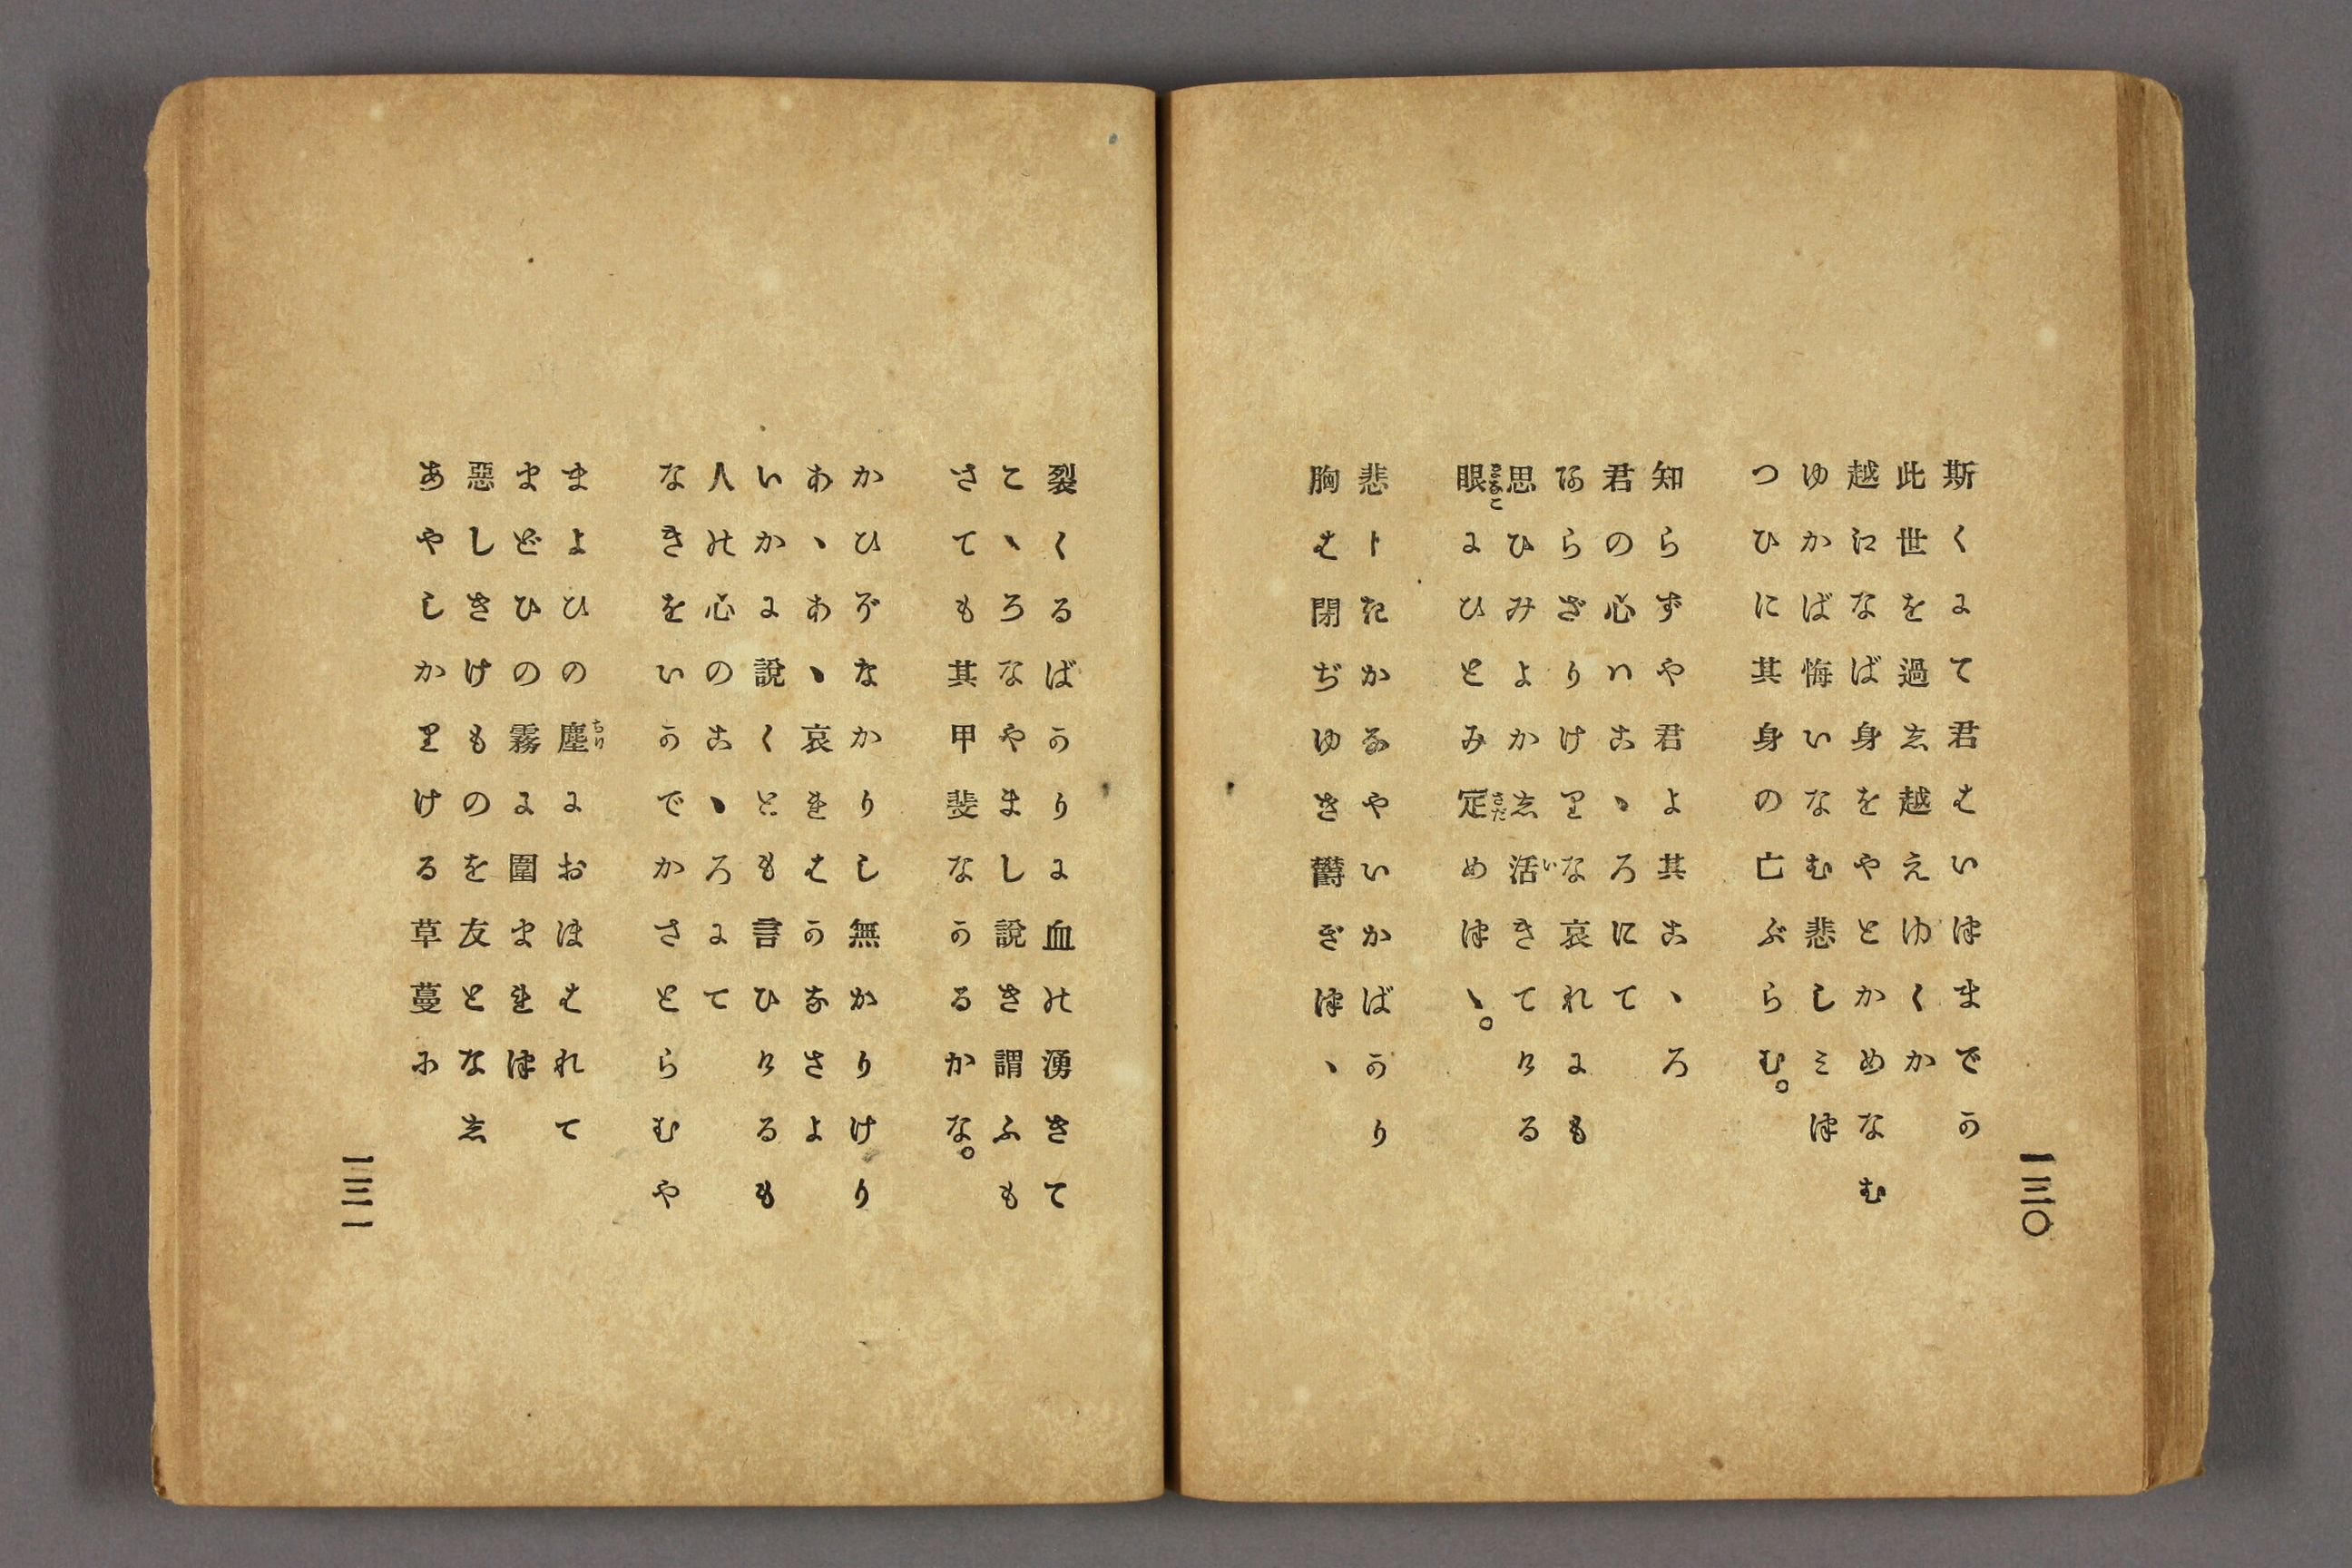 斯くにて君はいつまでか
此世を過し越えゆくか
越えなば身をやとかめなむ
ゆかば悔いなむ悲しみつ
つひに其身の亡ぶらむ。
知らずや君よ其こゝろ
君の心はこゝろにて
ならざりけりな哀れにも
思ひみよかし活きてける
眼にひとみ定めつゝ。
悲しきかなやいかばかり
胸は閉ぢゆき欝ぎつゝ
一三〇
裂くるばかりに血の湧きて
こゝろなやまし說き謂ふも
さても其甲斐なかるかな。
かひぞなかりし無かりけり
あゝあゝ哀れはかなさよ
いかに說くとも言ひけるも
人の心のこゝろにて
なきをいかでかさとらむや
まよひの塵におほはれて
まどひの霧に圍まれつ
惡しきけものを友となし
あやしかりける草蔓に
一三一